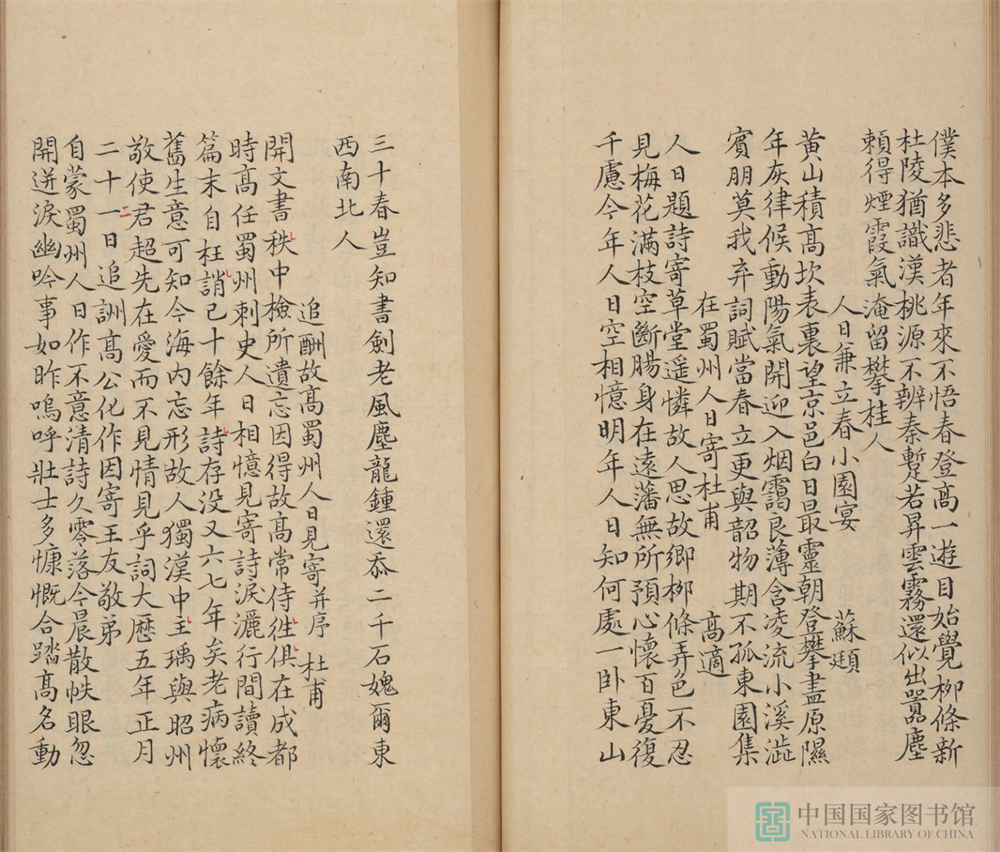 僕本多悲者年來不悟春登高一遊目始覺柳條新
杜陵猶識漢桃源不辨秦蹔若昇雲霧還似出嚣塵
頼得煙霞氣淹留攀桂人
人日兼立春小園宴 蘇頲
黄山積高坎表裏望京邑白日最靈朝登攀盡原隰
年灰律候動陽氣開迎入烟靄良薄含凌流小溪澁
賓朋莫我弃詞賦當春立更與韶物期不孤東園集
在蜀州人日寄杜甫 高適
人日題詩寄草堂遥憐故人思故鄉栁條弄色不忍
見梅花滿枝空斷腸身在遠藩無所預心懷百憂復
千慮今年人日空相憶明年人日知何處一卧東山
三十春豈知書劍老風塵龍鍾還忝二千石媿爾東
西南北人
追酬故高蜀州人日見寄并序 杜甫
開文書秩中檢所遺忘因得故高常侍徃俱在成都
時高任蜀州刺史人日相憶見寄詩淚灑行間讀終
篇末自枉誚已十餘年詩存没又六七年矣老病懷
舊生意可知今海内忘形故人獨漢中主瑀與昭州
敬使君超先在愛而不見情見乎詞大歷五年正月
二十一日追詶高公化作因寄王友敬弟
自蒙蜀州人日作不意清詩久零落今晨散帙眼忽
開迸淚幽吟事如昨嗚呼壯士多慷慨合踏高名動
中国国家图书馆
NATIONAL LIBRARY OF CHINA